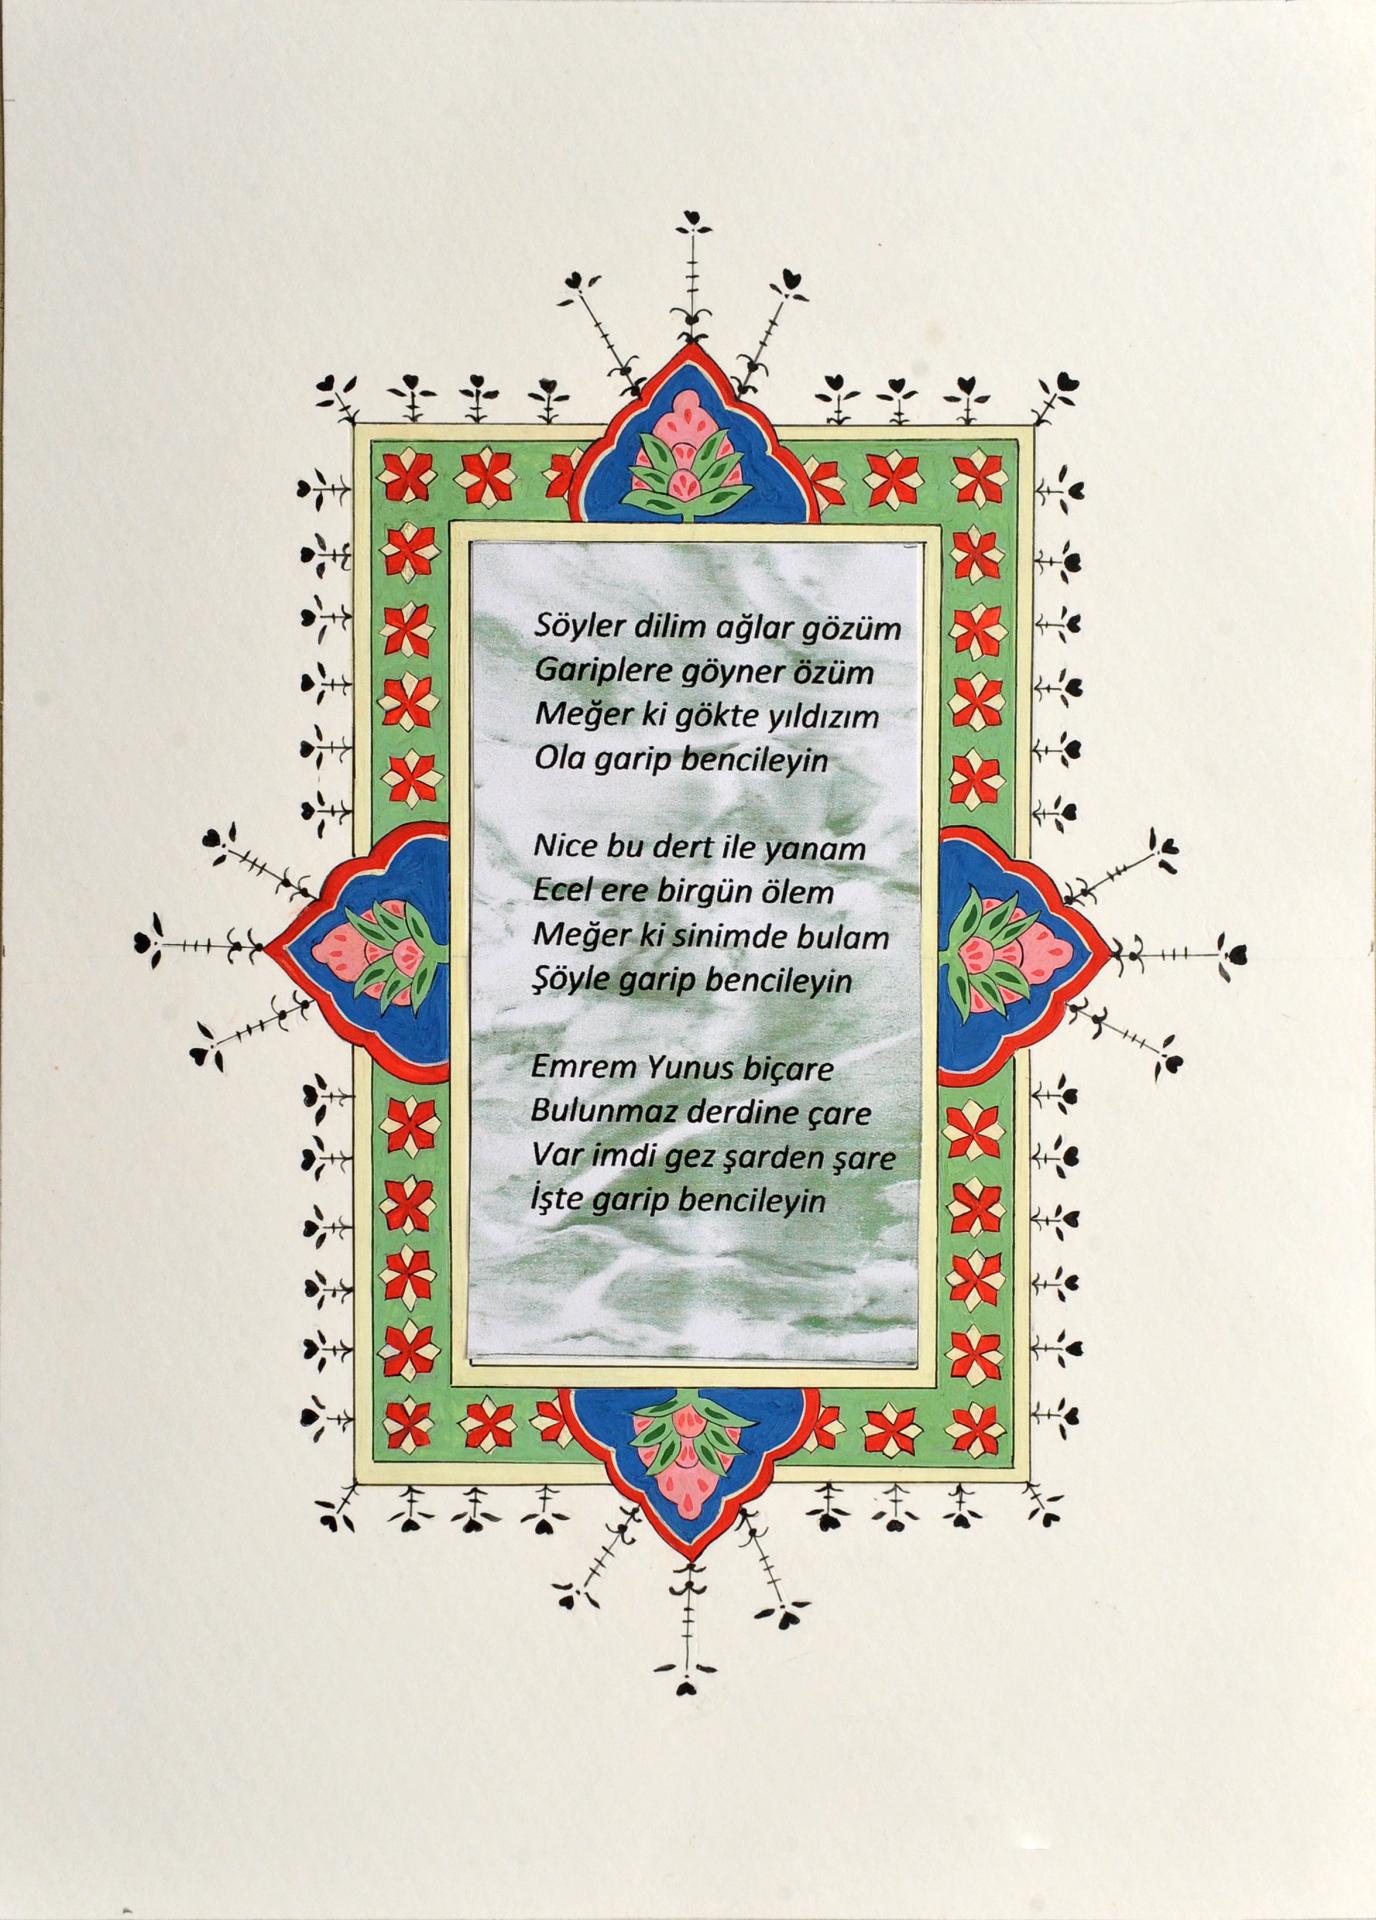 Söyler dilim ağlar gözüm
Gariplere göyner özüm
Meğer ki gökte yıldızım
Ola garip bencileyin
Nice bu dert ile yanam
Ecel ere birgün ölem
Meğer ki sinimde bulam
Şöyle garip bencileyin
Emrem Yunus biçare
Bulunmaz derdine çare
Var imdi gez şarden şare
İşte garip bencileyin